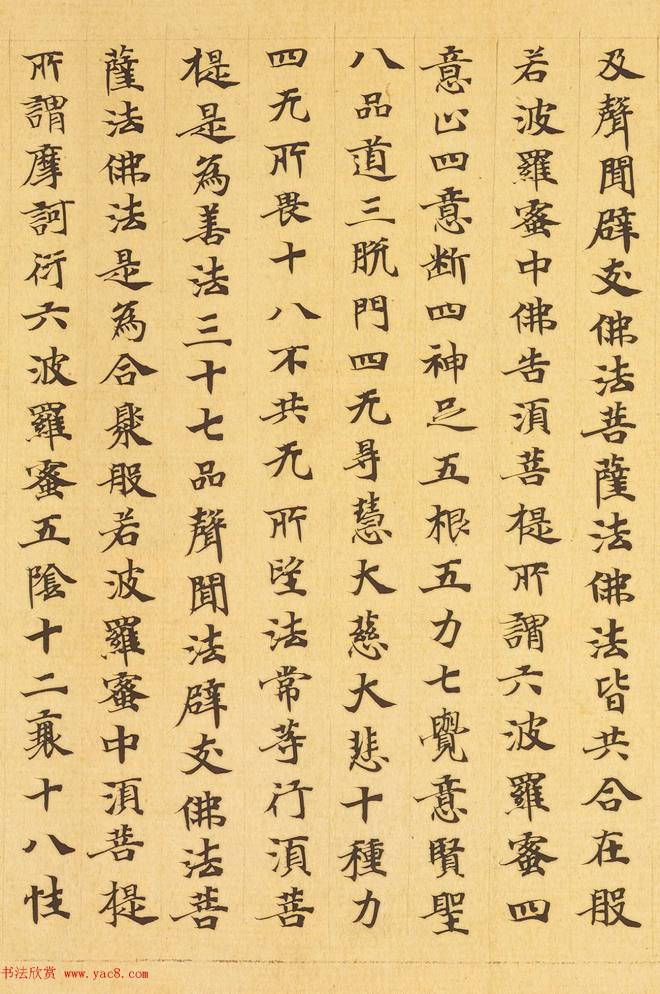 及聲聞辟支佛法菩薩法佛法皆共合在般
若波羅蜜中佛告須菩提所謂六波羅蜜四
意止四意断四神足五根五力七覺意賢聖
八品道三脫門四无㝵慧大慈大悲十種力
四无所畏十八不共无所望法常等行須菩
提是為善法三十七品聲聞法辟支佛法菩
薩法佛法是為合聚般若波羅蜜中須菩提
所謂摩訶衍六波羅蜜五陰十二衰十八性
书法欣赏 www.yac8.com